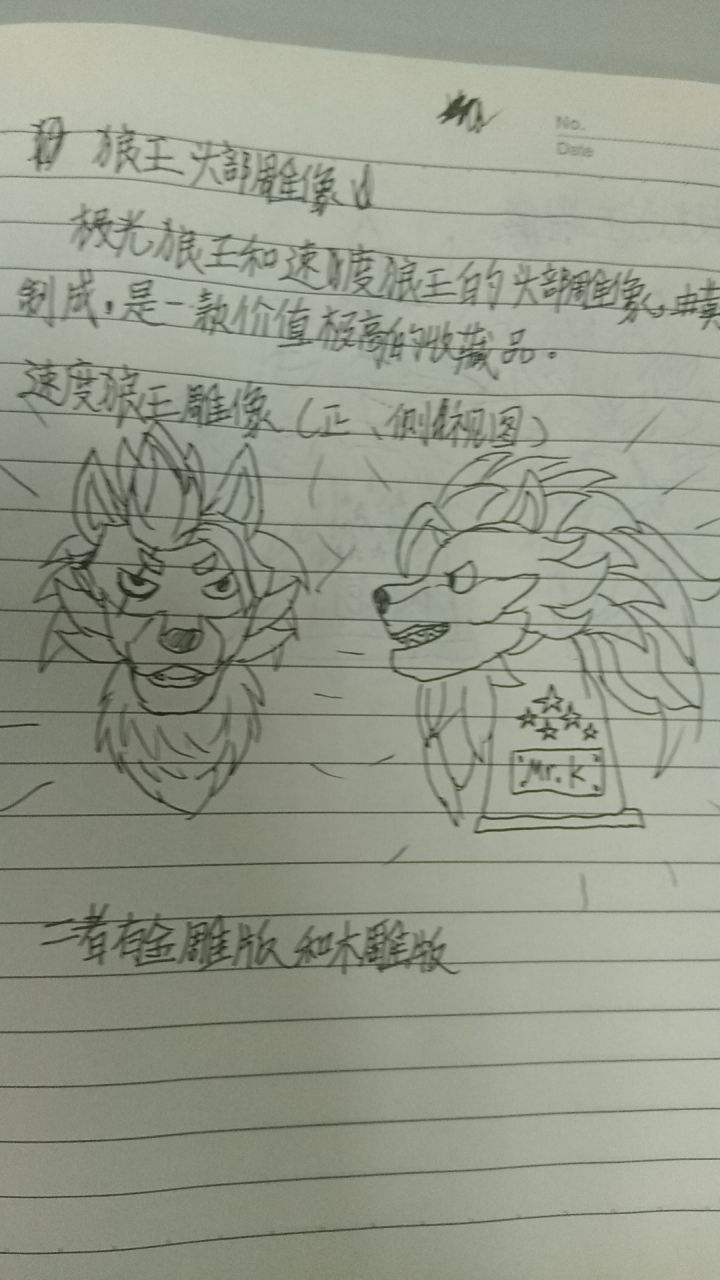 No.
Date
狼王头部雕像
极光狼王和速度狼王的头部雕像，由黄
制成，是一款价值极高的收藏品。
速度狼王雕像（正、侧视图）
Mr.K
二者有金雕版和木雕版